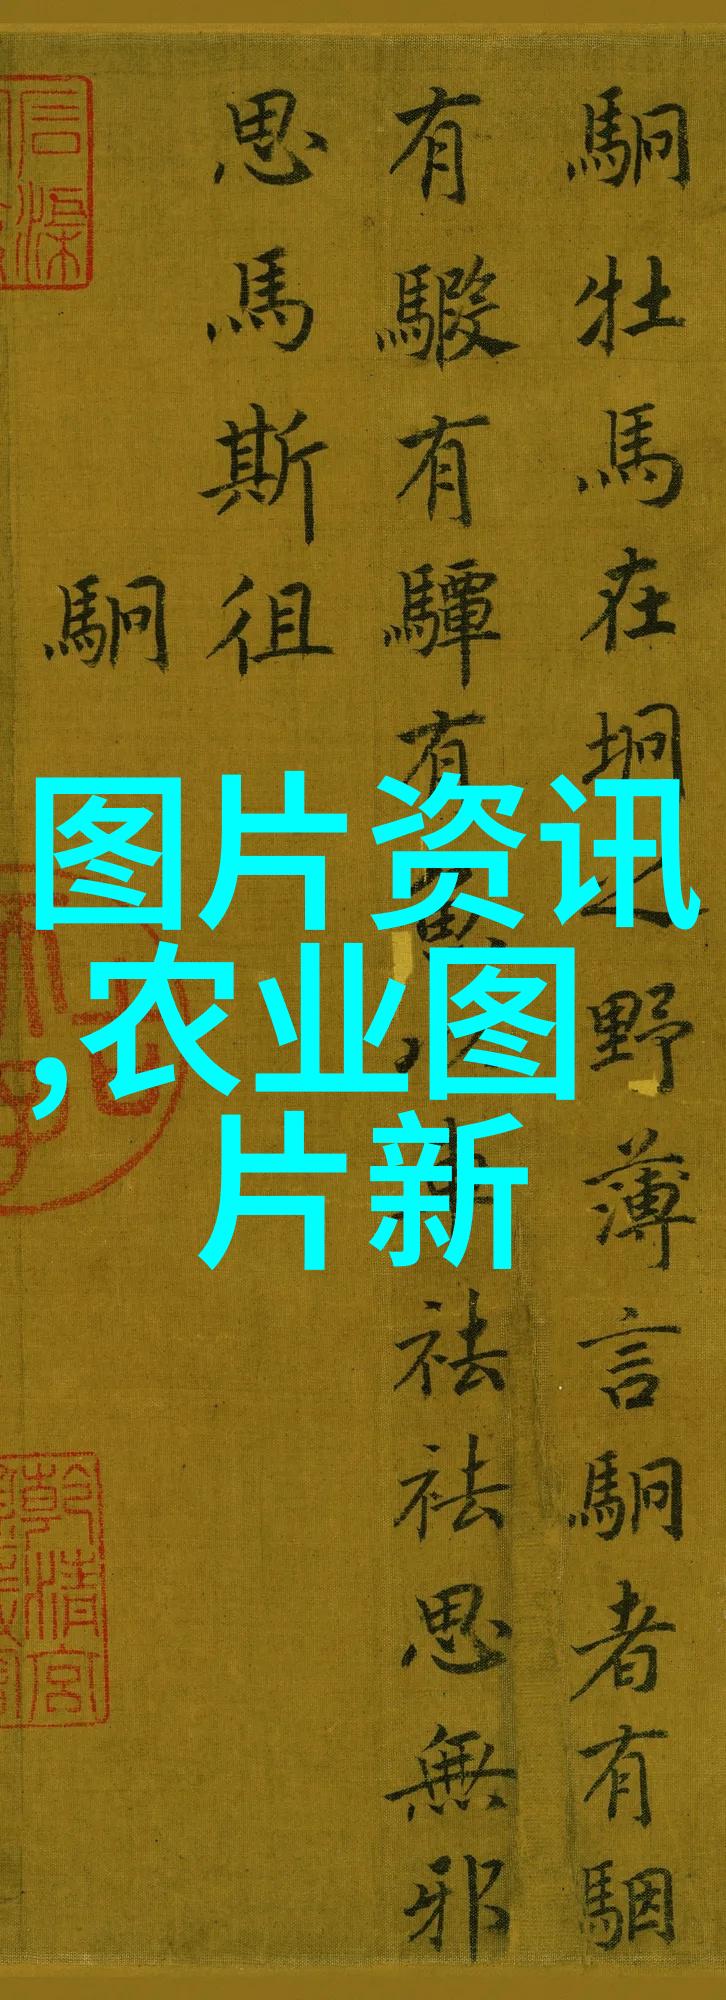 駉牡馬在坰之野薄言駉者有駰
有騢有驔有魚以車祛祛思無邪
思馬斯徂
駉
图片资讯
,农业图
片新